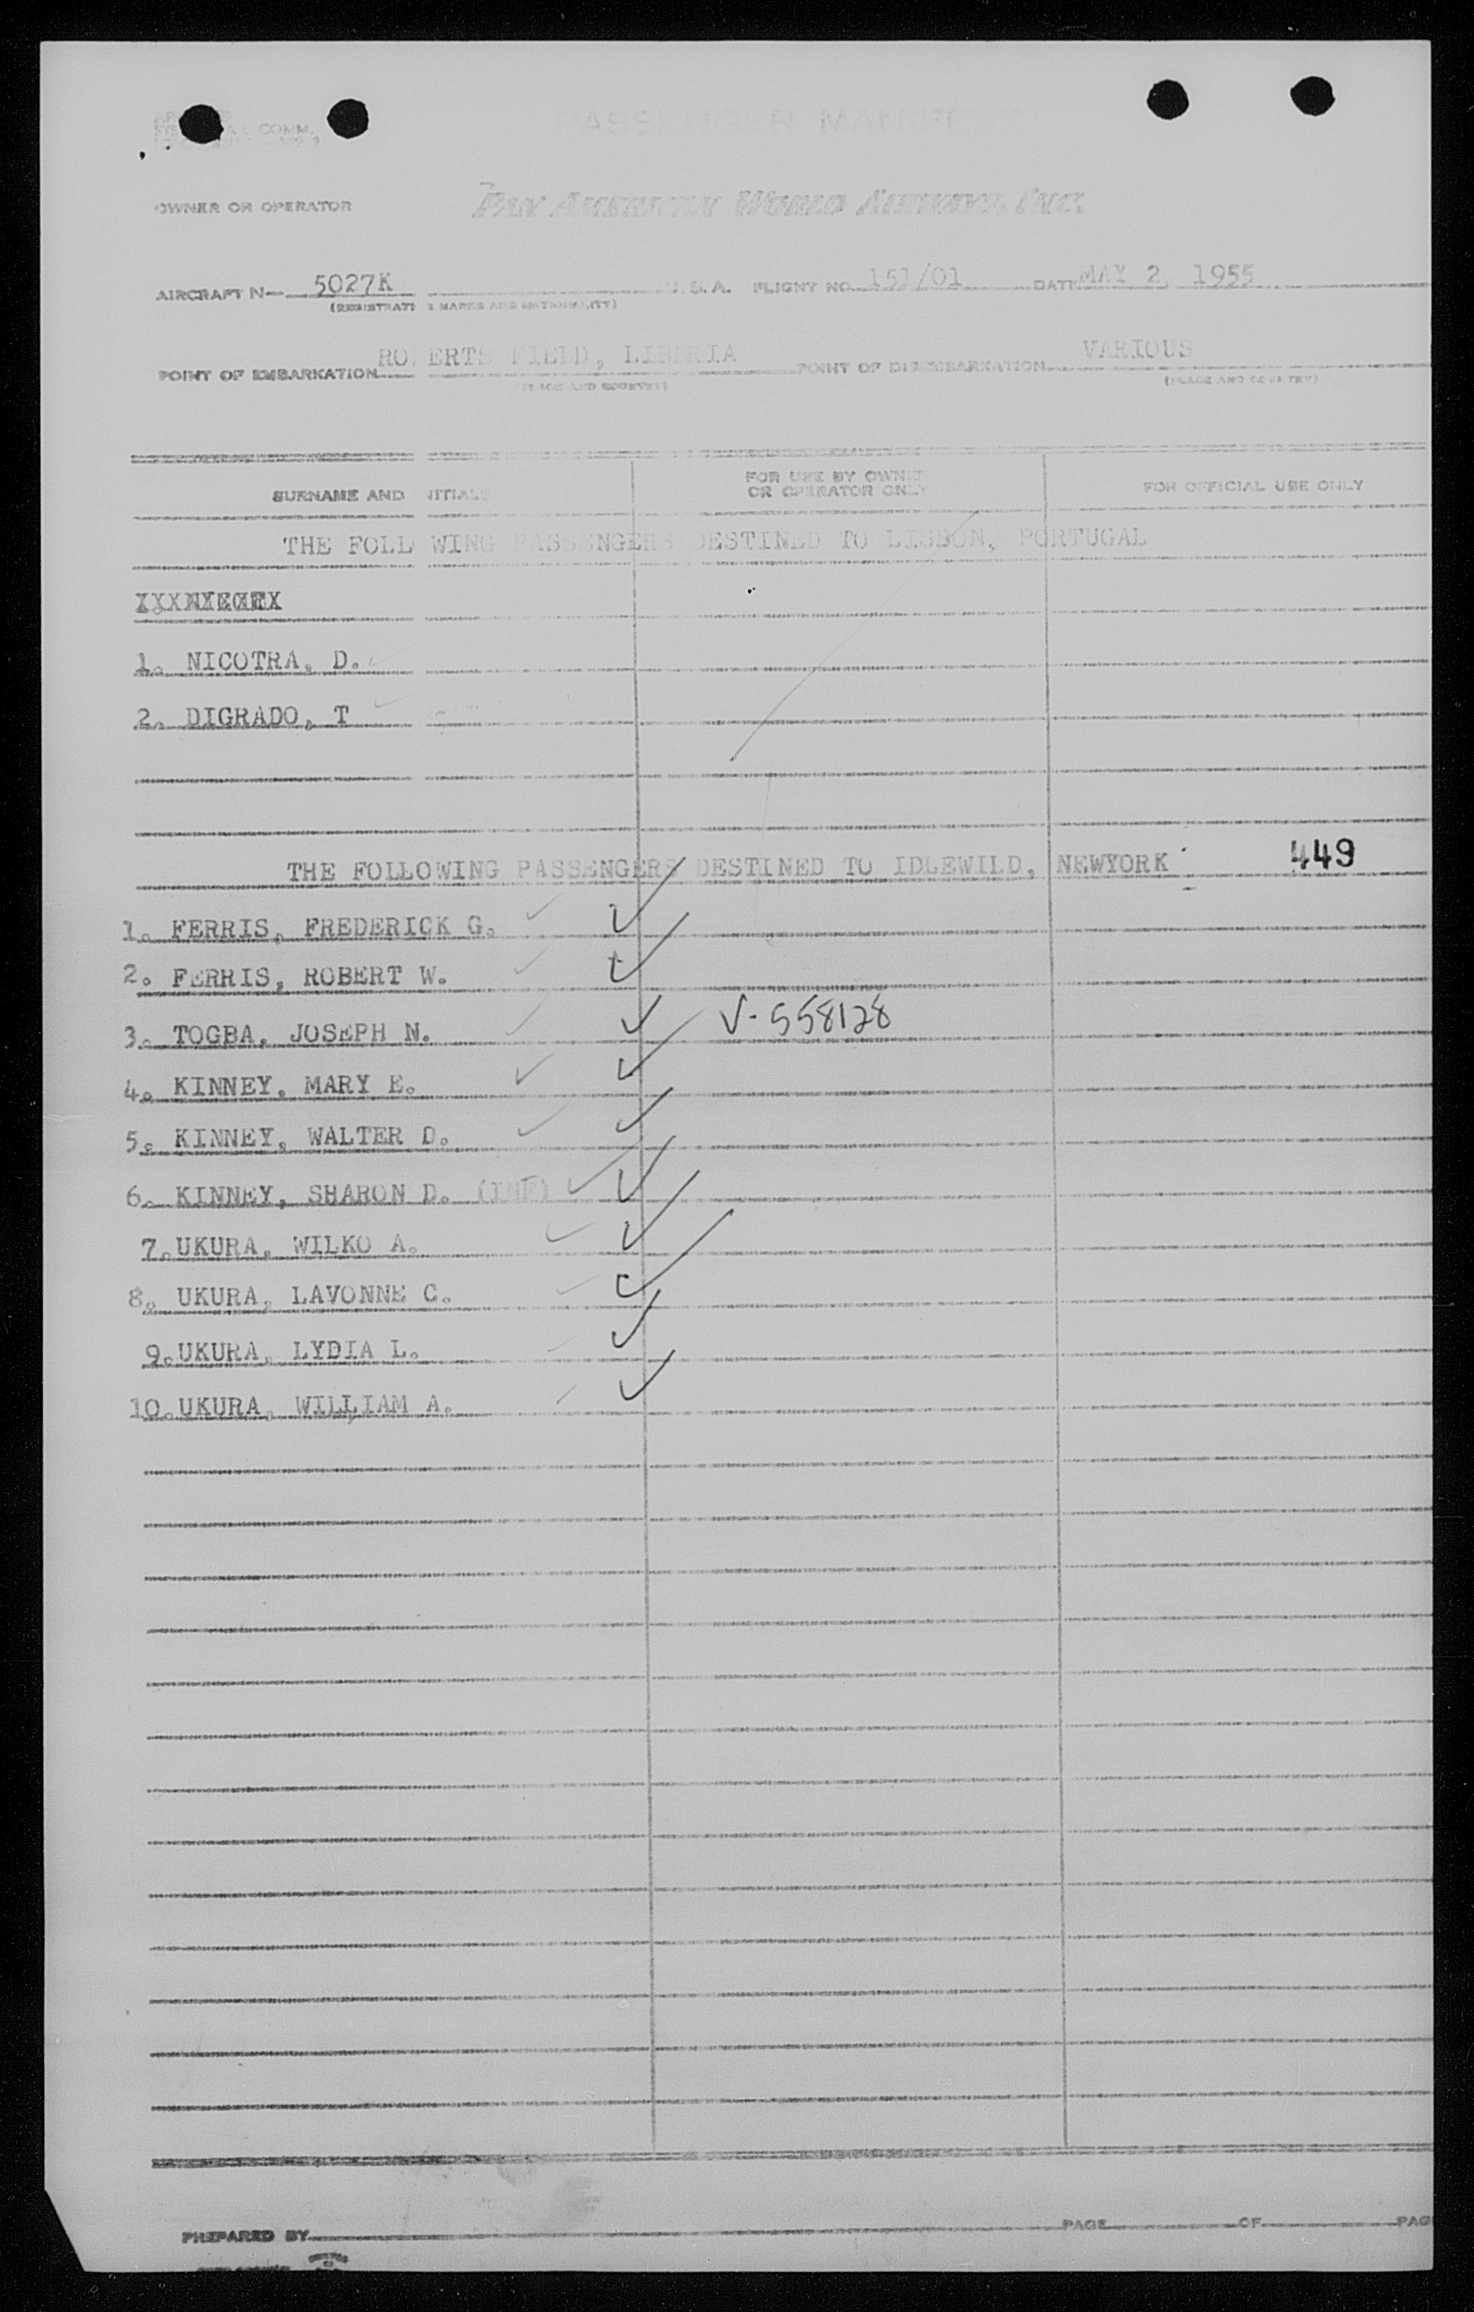 COMM.
PASSENGER MANIFEST
OWNER OR OPERATOR PAN AMERICAN WORLD AIRWAYS, INC.
AIRCRAFT N— 5027K U.S.A. FLIGHT NO. 151/01 DATE MAY 2, 1955
(REGISTRATI MARKS AND NATIONALITY)
POINT OF EMBARKATION RO ERTS FIELD, LIBERIA POINT OF DISEMBARKATION VARIOUS
(PLACE AND COUNTRY) (PLACE AND COUNTRY)
SURNAME AND ITIALS FOR USE BY OWNER OR OPERATOR ONLY FOR OFFICIAL USE ONLY
THE FOLL WING PASSENGERS DESTINED TO LISBON, PORTUGAL
1. NICOTRA, D.
2. DIGRADO, T
THE FOLLOWING PASSENGERS DESTINED TO IDLEWILD, NEWYORK 449
1. FERRIS, FREDERICK G.
2. FERRIS, ROBERT W.
3. TOGBA, JOSEPH N. V-558128
4. KINNEY, MARY E.
5. KINNEY, WALTER D.
6. KINNEY, SHARON D. (INF)
7. UKURA, WILKO A.
8. UKURA, LAVONNE C.
9. UKURA, LYDIA L.
10. UKURA, WILLIAM A.
PREPARED BY PAGE OF PAG